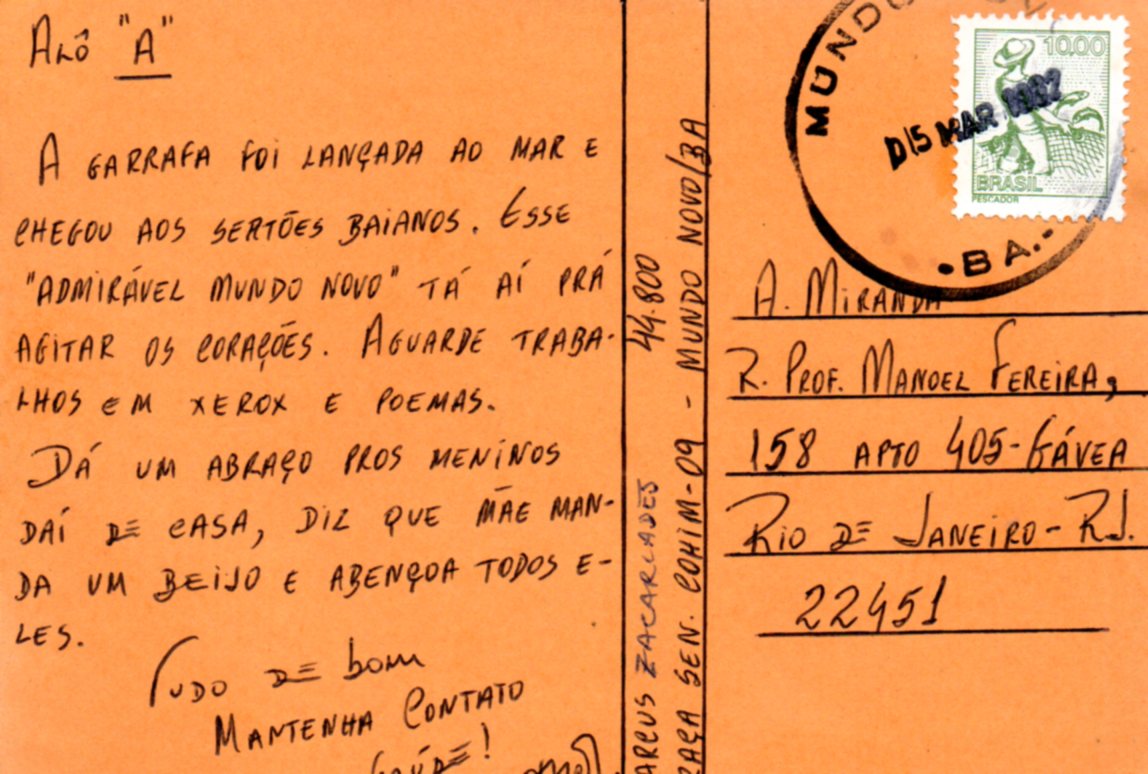 Alô "A"
A GARRAFA FOI LANÇADA AO MAR E
CHEGOU AOS SERTÕES BAIANOS. ESSE
"ADMIRÁVEL MUNDO NOVO" TÁ AÍ PRÁ
AGITAR OS CORAÇÕES. AGUARDE TRABA-
LHOS EM XEROX E POEMAS.
DÁ UM ABRAÇO PROS MENINOS
DAÍ DE CASA, DIZ QUE MÃE MAN-
DA UM BEIJO E ABENÇOA TODOS E-
LES.
TUDO DE bom
MANTENHA CONTATO
SAÚDE!
ARCUS ZACARIADES 44.800
RAÇA SEN. COHIM-09 - MUNDO NOVO/BA
MUNDO
BA.
05 MAR 1982
10,00
BRASIL
PESCADOR
A. MIRANDA
R. PROF. MANOEL FEREIRA,
158 APTO 405-GÁVEA
RIO DE JANEIRO-RJ.
22451